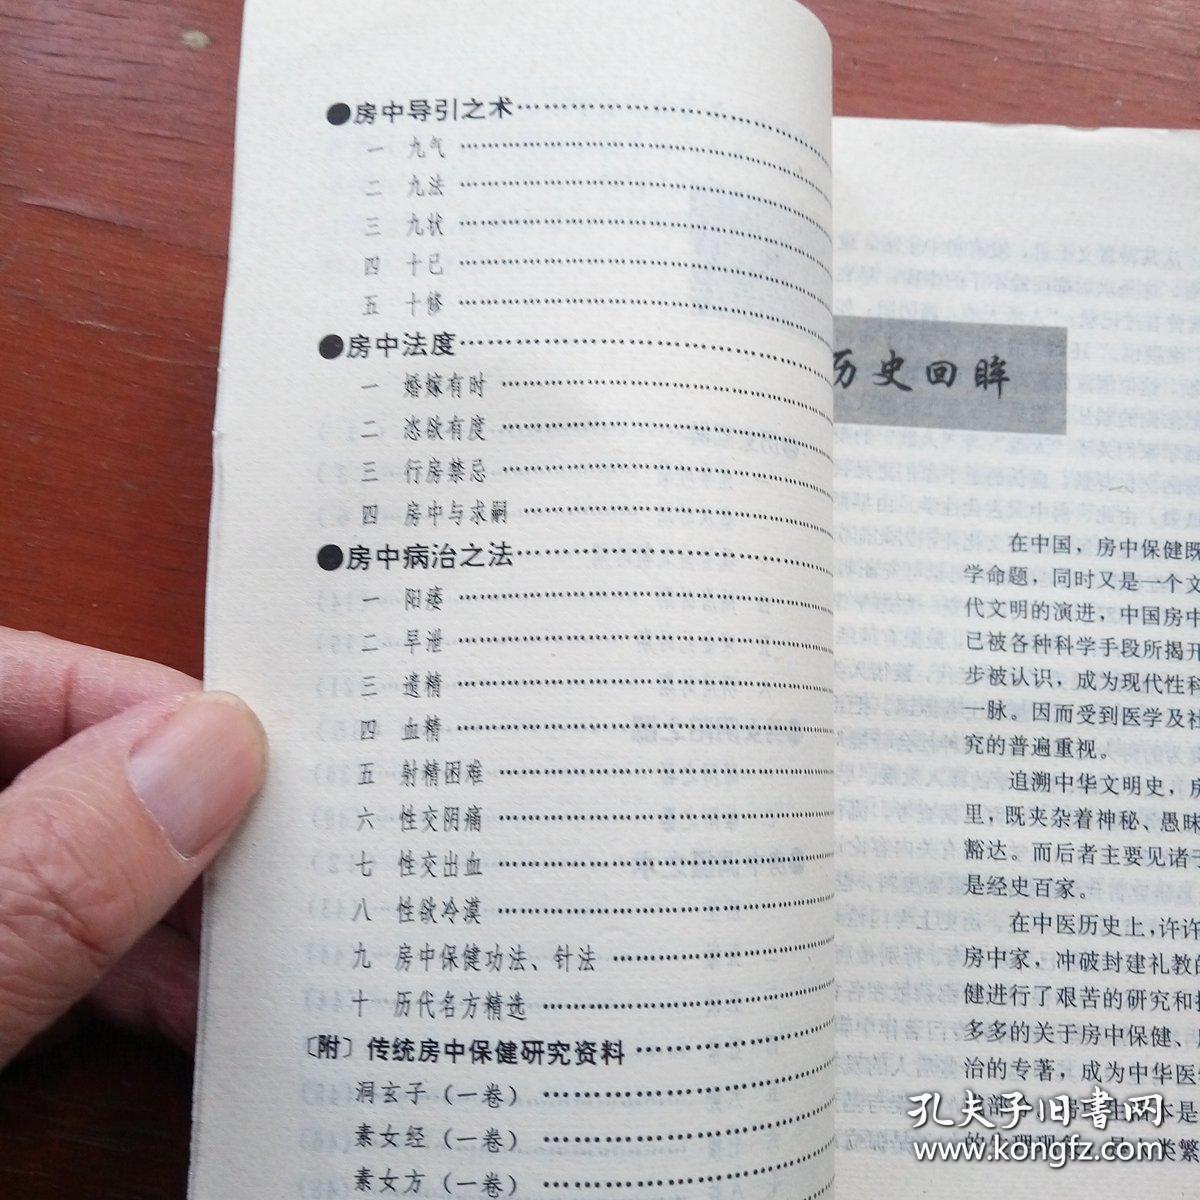 ●房中导引之术……………………………
一 九气……………………………
二 九法……………………………
三 九状……………………………
四 十已……………………………
五 十修……………………………
●房中法度……………………………
一 婚嫁有时……………………………
二 恣欲有度……………………………
三 行房禁忌……………………………
四 房中与求嗣……………………………
●房中病治之法……………………………
一 阳痿……………………………
二 早泄……………………………
三 遗精……………………………
四 血精……………………………
五 射精困难……………………………
六 性交阴痛……………………………
七 性交出血……………………………
八 性欲冷漠……………………………
九 房中保健功法、针法……………………
十 历代名方精选……………………………
〔附〕传统房中保健研究资料……………………
洞玄子(一卷)……………………………
素女经(一卷)……………………………
素女方(一卷)……………………………
历史回眸
在中国,房中保健既
学命题,同时又是一个文
代文明的演进,中国房中
已被各种科学手段所揭开
步被认识,成为现代性科
一脉。因而受到医学及社
究的普遍重视。
追溯中华文明史,房
里,既夹杂着神秘、愚昧
豁达。而后者主要见诸于
是经史百家。
在中医历史上,许许
房中家,冲破封建礼教的
健进行了艰苦的研究和
多多的关于房中保健、
治的专著,成为中华医
孔夫子旧书网
www.kongfz.com